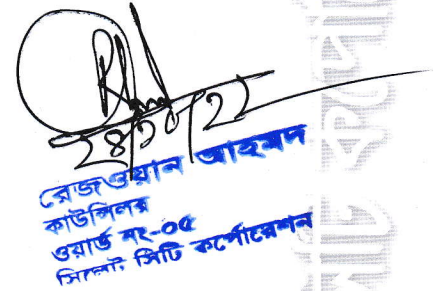 ২৪/১০/২২
রেজওয়ান আহমদ
কাউন্সিলর
ওয়ার্ড নং-০৫
সিলেট সিটি কর্পোরেশন